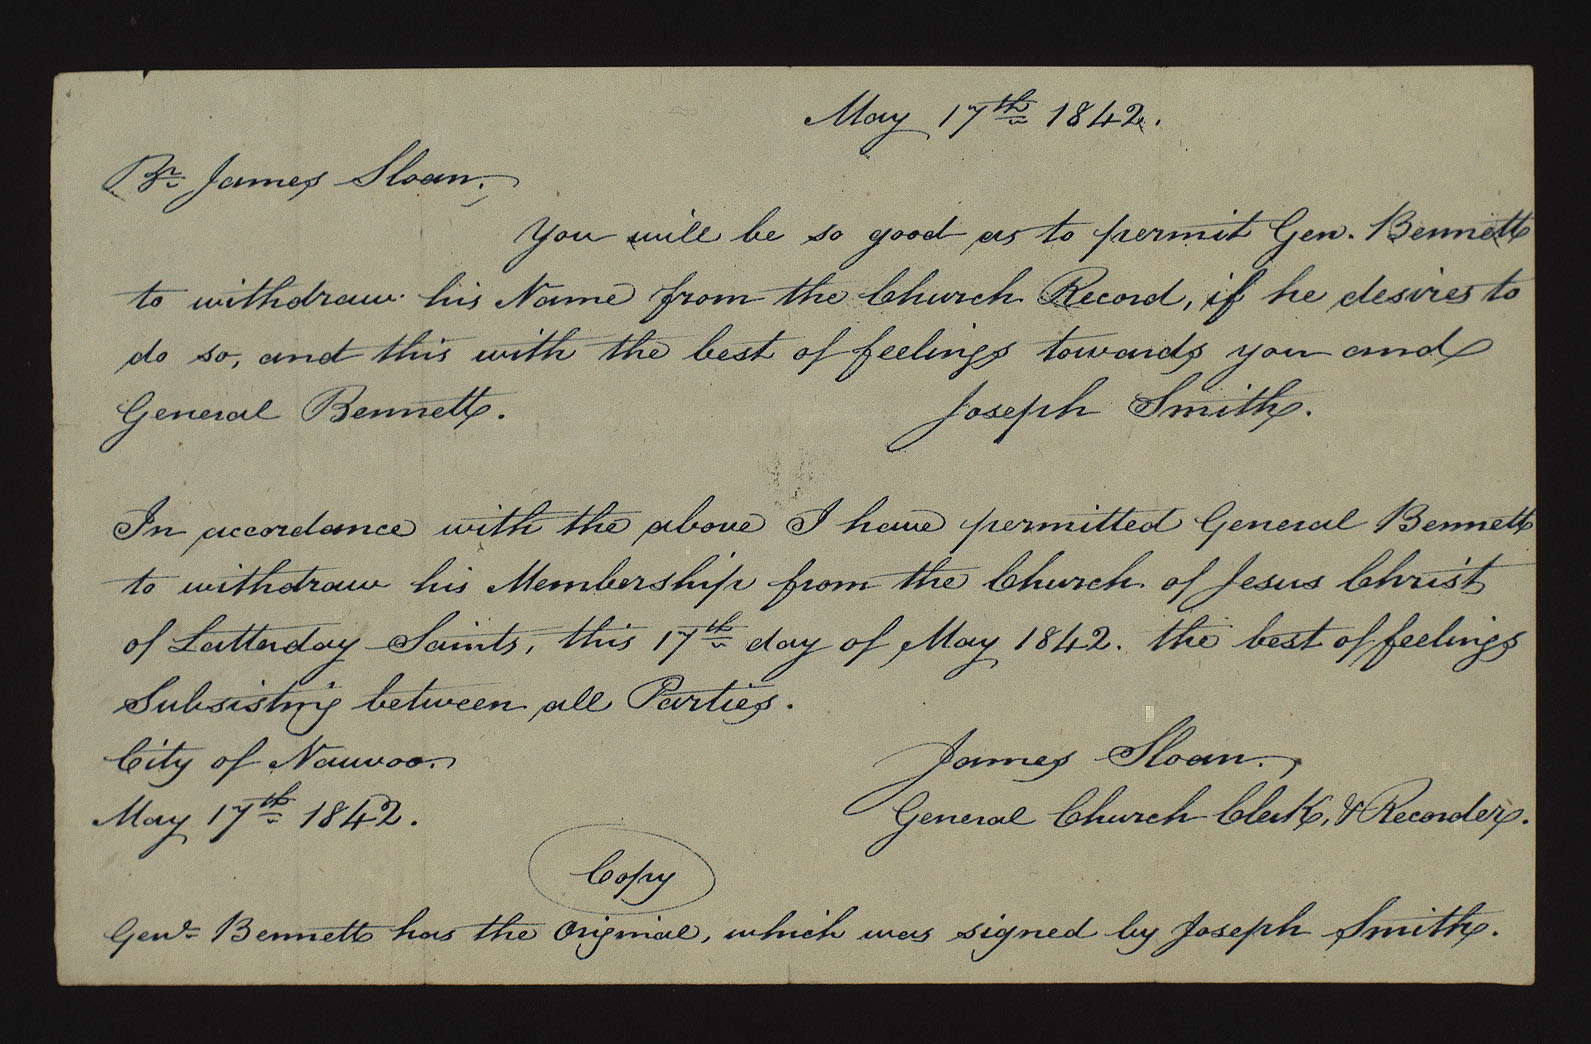 May 17th 1842.
Br. James Sloan,
You will be so good as to permit Gen. Bennett
to withdraw his Name from the Church Record, if he desires to
do so, and this with the best of feelings towards you and
General Bennett.
Joseph Smith.
In accordance with the above I have permitted General Bennett
to withdraw his Membership from the Church of Jesus Christ
of Latterday Saints, this 17th day of May 1842. the best of feelings
Subsisting between all Parties.
City of Nauvoo.
James Sloan,
May 17th 1842.
General Church Clerk, & Recorder.
Copy
Genl. Bennett has the Original, which was signed by Joseph Smith.